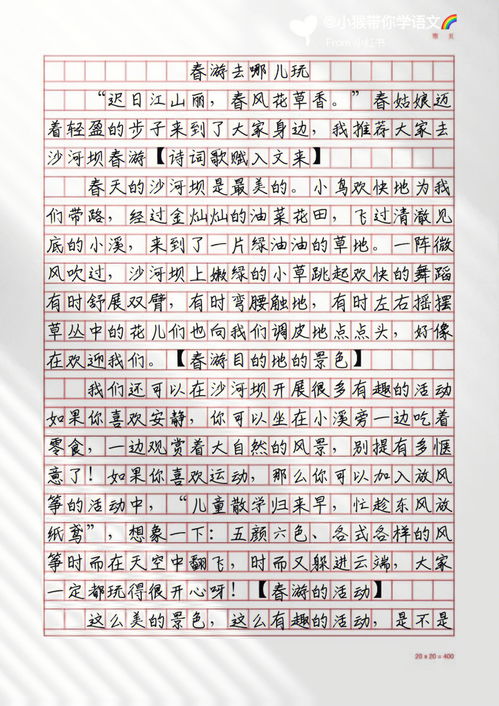 @小猴带你学语文🌈
From小红书
春游去哪儿玩
“迟日江山丽，春风花草香。”春姑娘迈
着轻盈的步子来到了大家身边，我推荐大家去
沙河坝春游【诗词歌赋入文来】
春天的沙河坝是最美的。小鸟欢快地为我
们带路，经过金灿灿的油菜花田，飞过清澈见
底的小溪，来到了一片绿油油的草地。一阵微
风吹过，沙河坝上嫩绿的小草跳起欢快的舞蹈
有时舒展双臂，有时弯腰触地，有时左右摇摆
草丛中的花儿们也向我们调皮地点点头，好像
在欢迎我们。【春游目的地的景色】
我们还可以在沙河坝开展很多有趣的活动
如果你喜欢安静，你可以坐在小溪旁一边吃着
零食，一边观赏着大自然的风景，别提有多惬
意了！如果你喜欢运动，那么你可以加入放风
筝的活动中，“儿童散学归来早，忙趁东风放
纸鸢”，想象一下：五颜六色、各式各样的风
筝时而在天空中翻飞，时而又躲进云端，大家
一定都玩得很开心呀！【春游的活动】
这么美的景色，这么有趣的活动，是不是
20×20=400